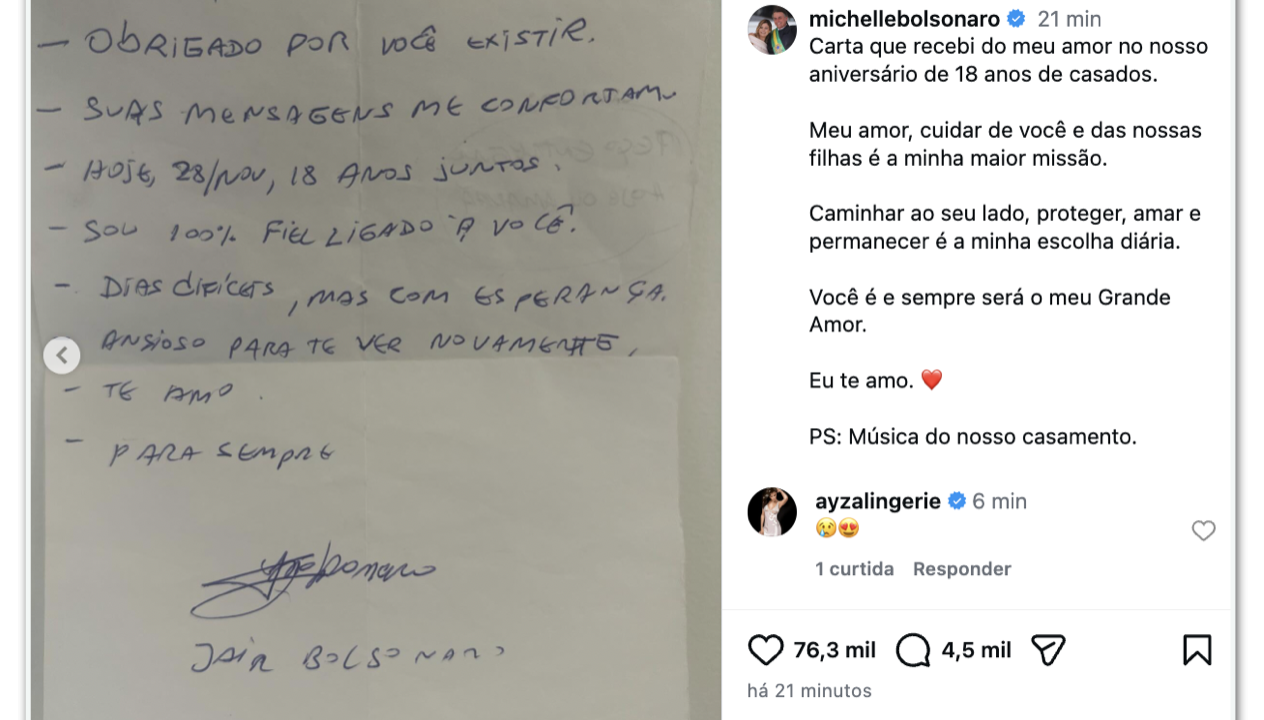 — OBRIGADO POR VOCÊ EXISTIR.
— SUAS MENSAGENS ME CONFORTAM.
— HOJE, 28/NOV, 18 ANOS JUNTOS.
— SOU 100% FIEL LIGADO À VOCÊ.
— DIAS DIFÍCEIS, MAS COM ESPERANÇA.
ANSIOSO PARA TE VER NOVAMENTE,
— TE AMO.
— PARA SEMPRE
JAIR BOLSONARO
michellebolsonaro 21 min
Carta que recebi do meu amor no nosso
aniversário de 18 anos de casados.
Meu amor, cuidar de você e das nossas
filhas é a minha maior missão.
Caminhar ao seu lado, proteger, amar e
permanecer é a minha escolha diária.
Você é e sempre será o meu Grande
Amor.
Eu te amo. ❤️
PS: Música do nosso casamento.
ayzalingerie 6 min
😢😍
1 curtida Responder
76,3 mil 4,5 mil
há 21 minutos